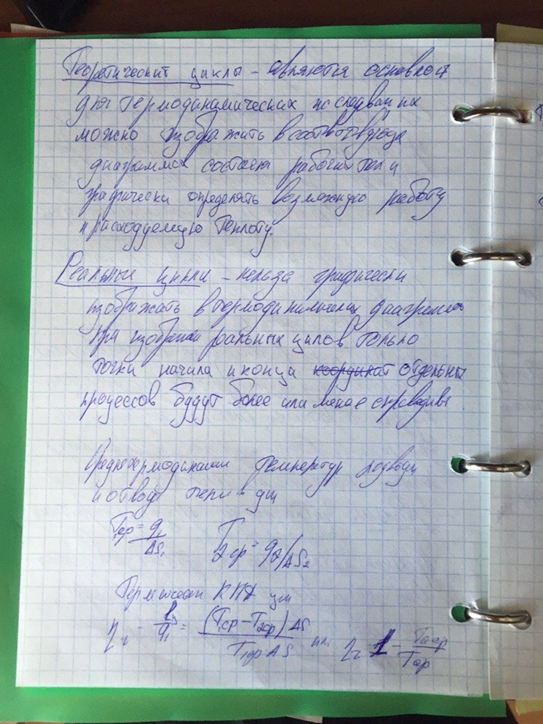 Теоретические циклы – являются основной
для термодинамических исследован их
можно изображать в соответствующе
диаграммах состоян рабочих тел и
графически определять возможную работу
и расходуемую теплоту.
Реальные циклы – нельзя графически
изображать в термодинамических диаграммах
При изображ реальных циклов только
точки начала и конца отдельны
процессов будут более или менее справедливы
Среднетермодинамич температур подвода
и отвода тепл в дм
T₁ср = q₁/ΔS₁ T₂ср = q₂/ΔS₂
Термически КПД
ηt = l/q₁ = (T₁ср – T₂ср) ΔS / T₁ср ΔS или ηt 1 – T₂ср/T₁ср